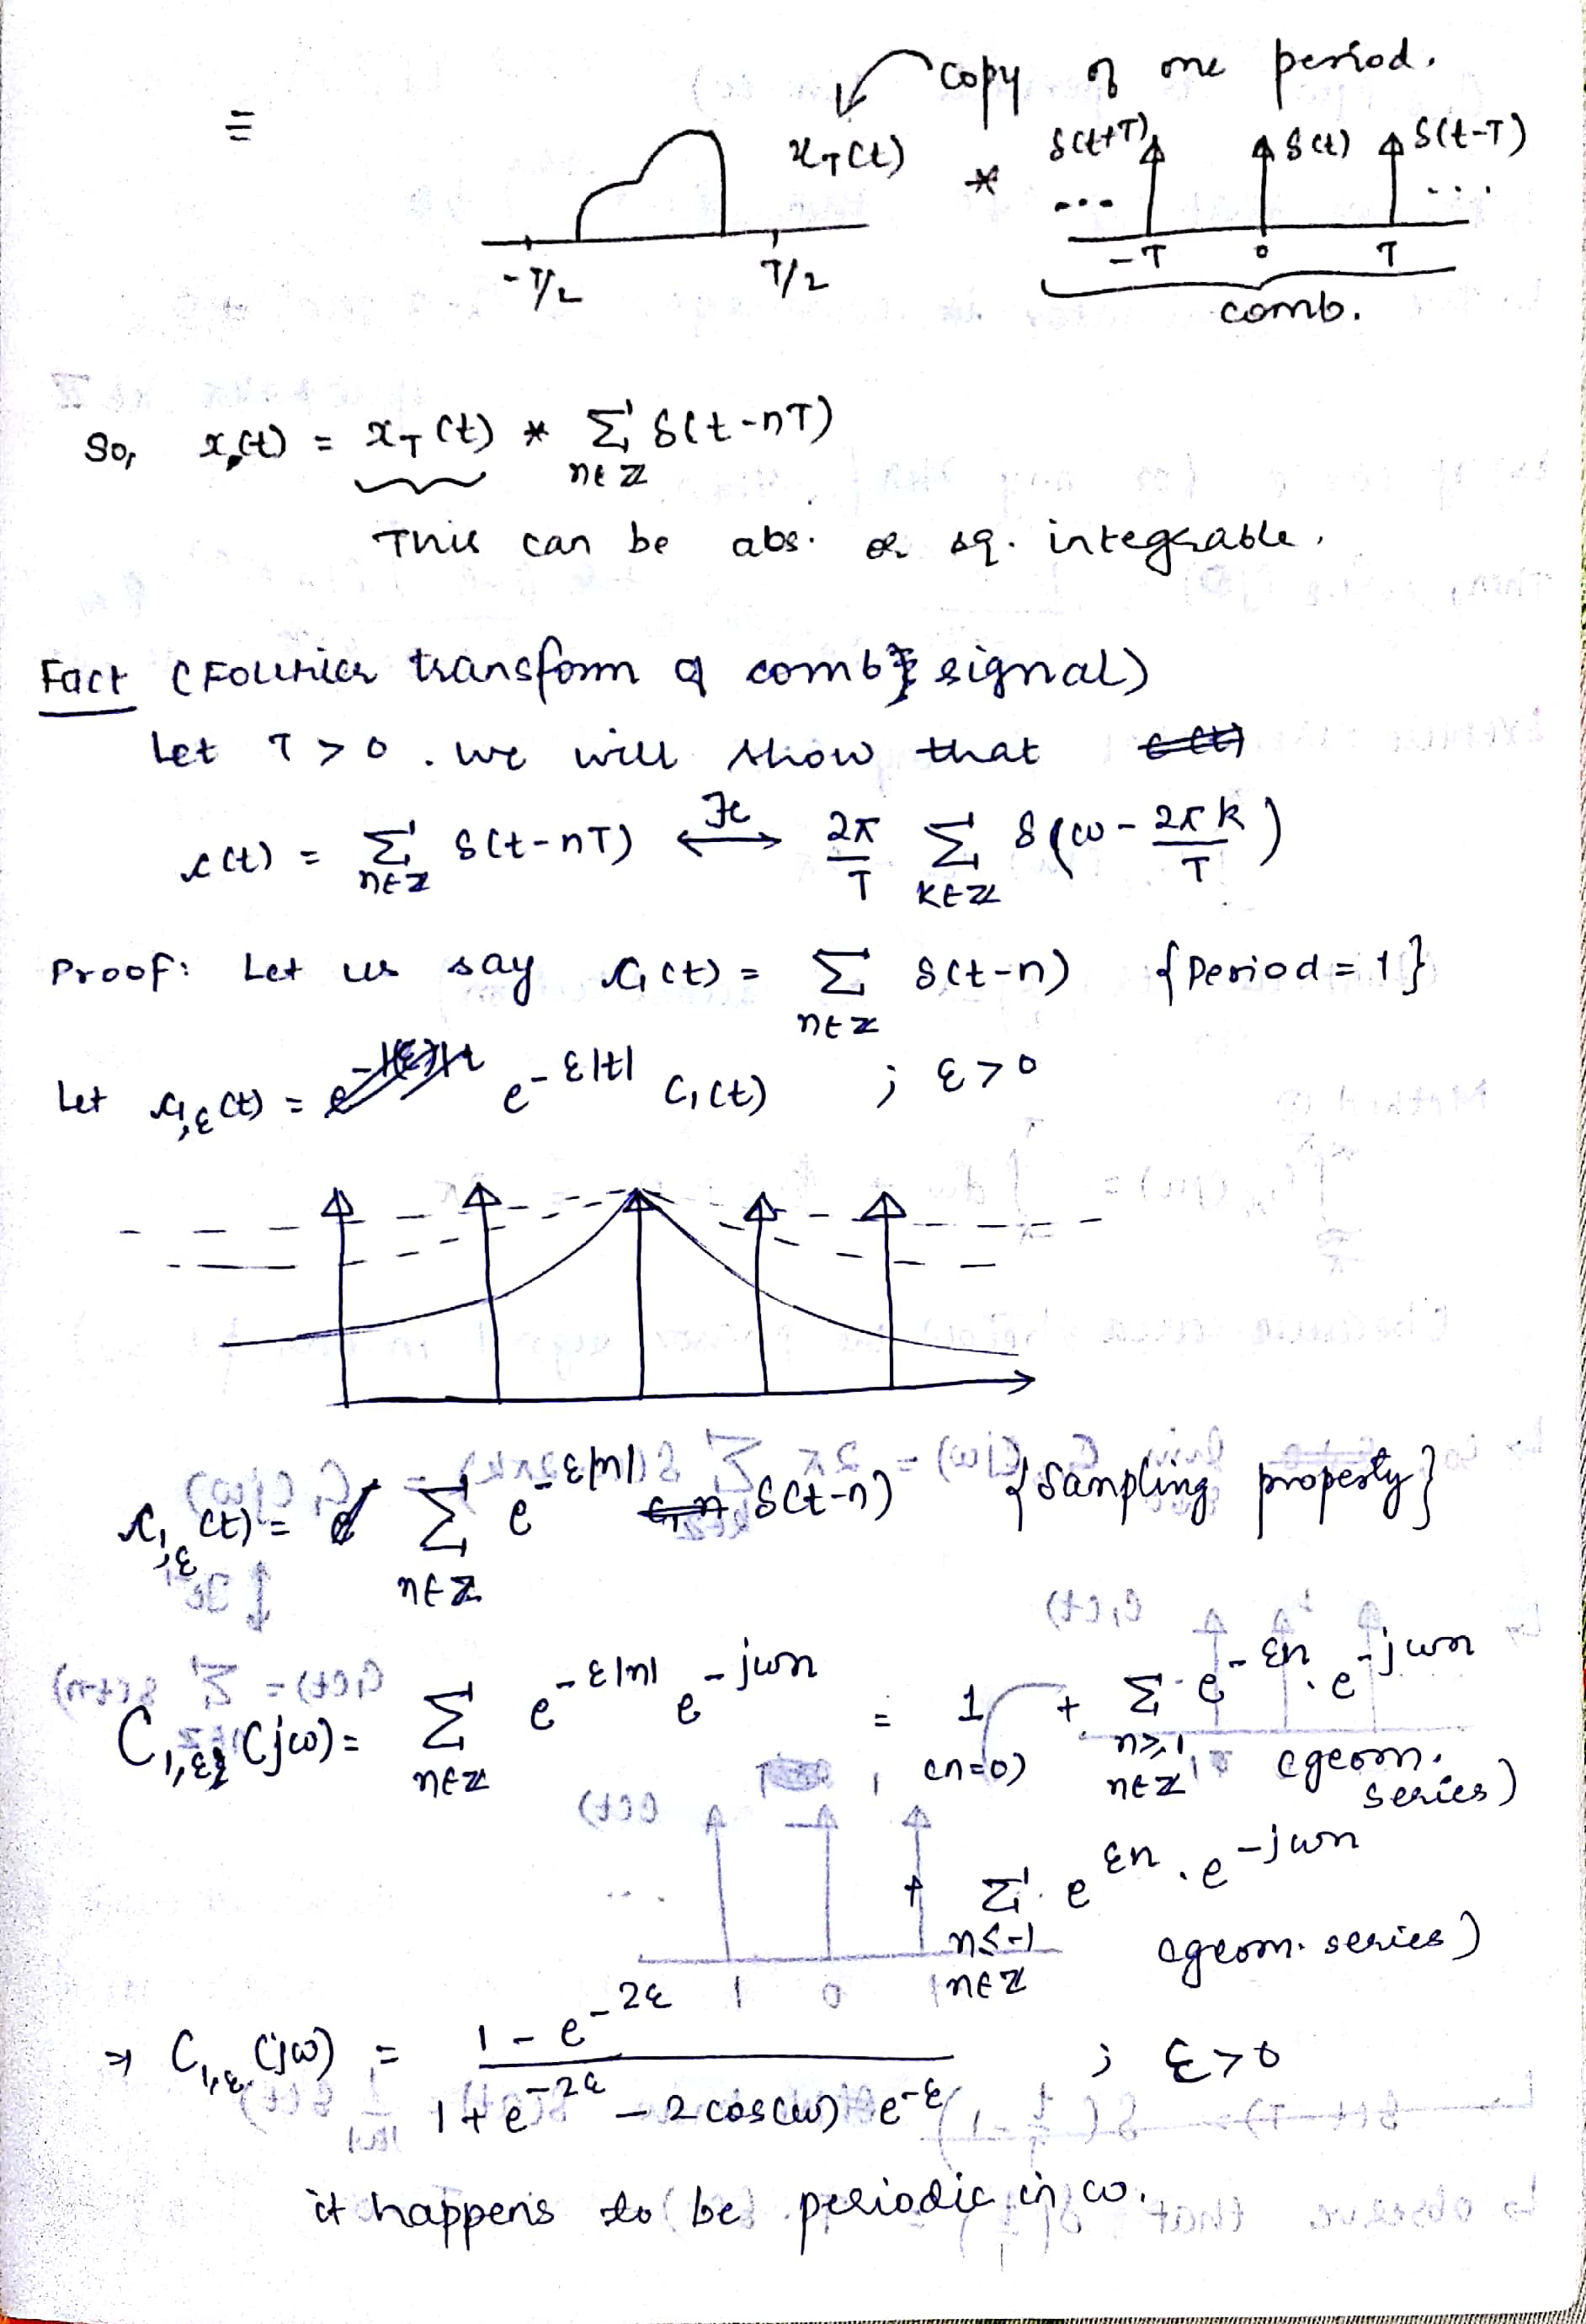 copy of one period.
≡ x_T(t) * δ(t+T) δ(t) δ(t-T)
... ...
-T/2 T/2 -T 0 T
comb.
So, x(t) = x_T(t) * Σ_{n∈ℤ} δ(t-nT)
This can be abs. or sq. integrable.
Fact (Fourier transform of comb signal)
Let T > 0. we will show that
c(t) = Σ_{n∈ℤ} δ(t-nT) ⟷ 2π/T Σ_{k∈ℤ} δ(ω - 2πk/T)
Proof: Let us say c₁(t) = Σ_{n∈ℤ} δ(t-n) {Period = 1}
Let c_{1,ε}(t) = e^{-ε|t|} c₁(t) ; ε > 0
c_{1,ε}(t) = Σ_{n∈ℤ} e^{-ε|n|} δ(t-n) {Sampling property}
C_{1,ε}(jω) = Σ_{n∈ℤ} e^{-ε|n|} e^{-jωn} = 1 + Σ_{n≥1, n∈ℤ} e^{-εn} . e^{-jωn}
(n=0) (geom. series)
+ Σ_{n≤-1, n∈ℤ} e^{εn} . e^{-jωn}
(geom. series)
⇒ C_{1,ε}(jω) = (1 - e^{-2ε}) / (1 + e^{-2ε} - 2cos(ω) e^{-ε}) ; ε > 0
it happens to be periodic in ω.